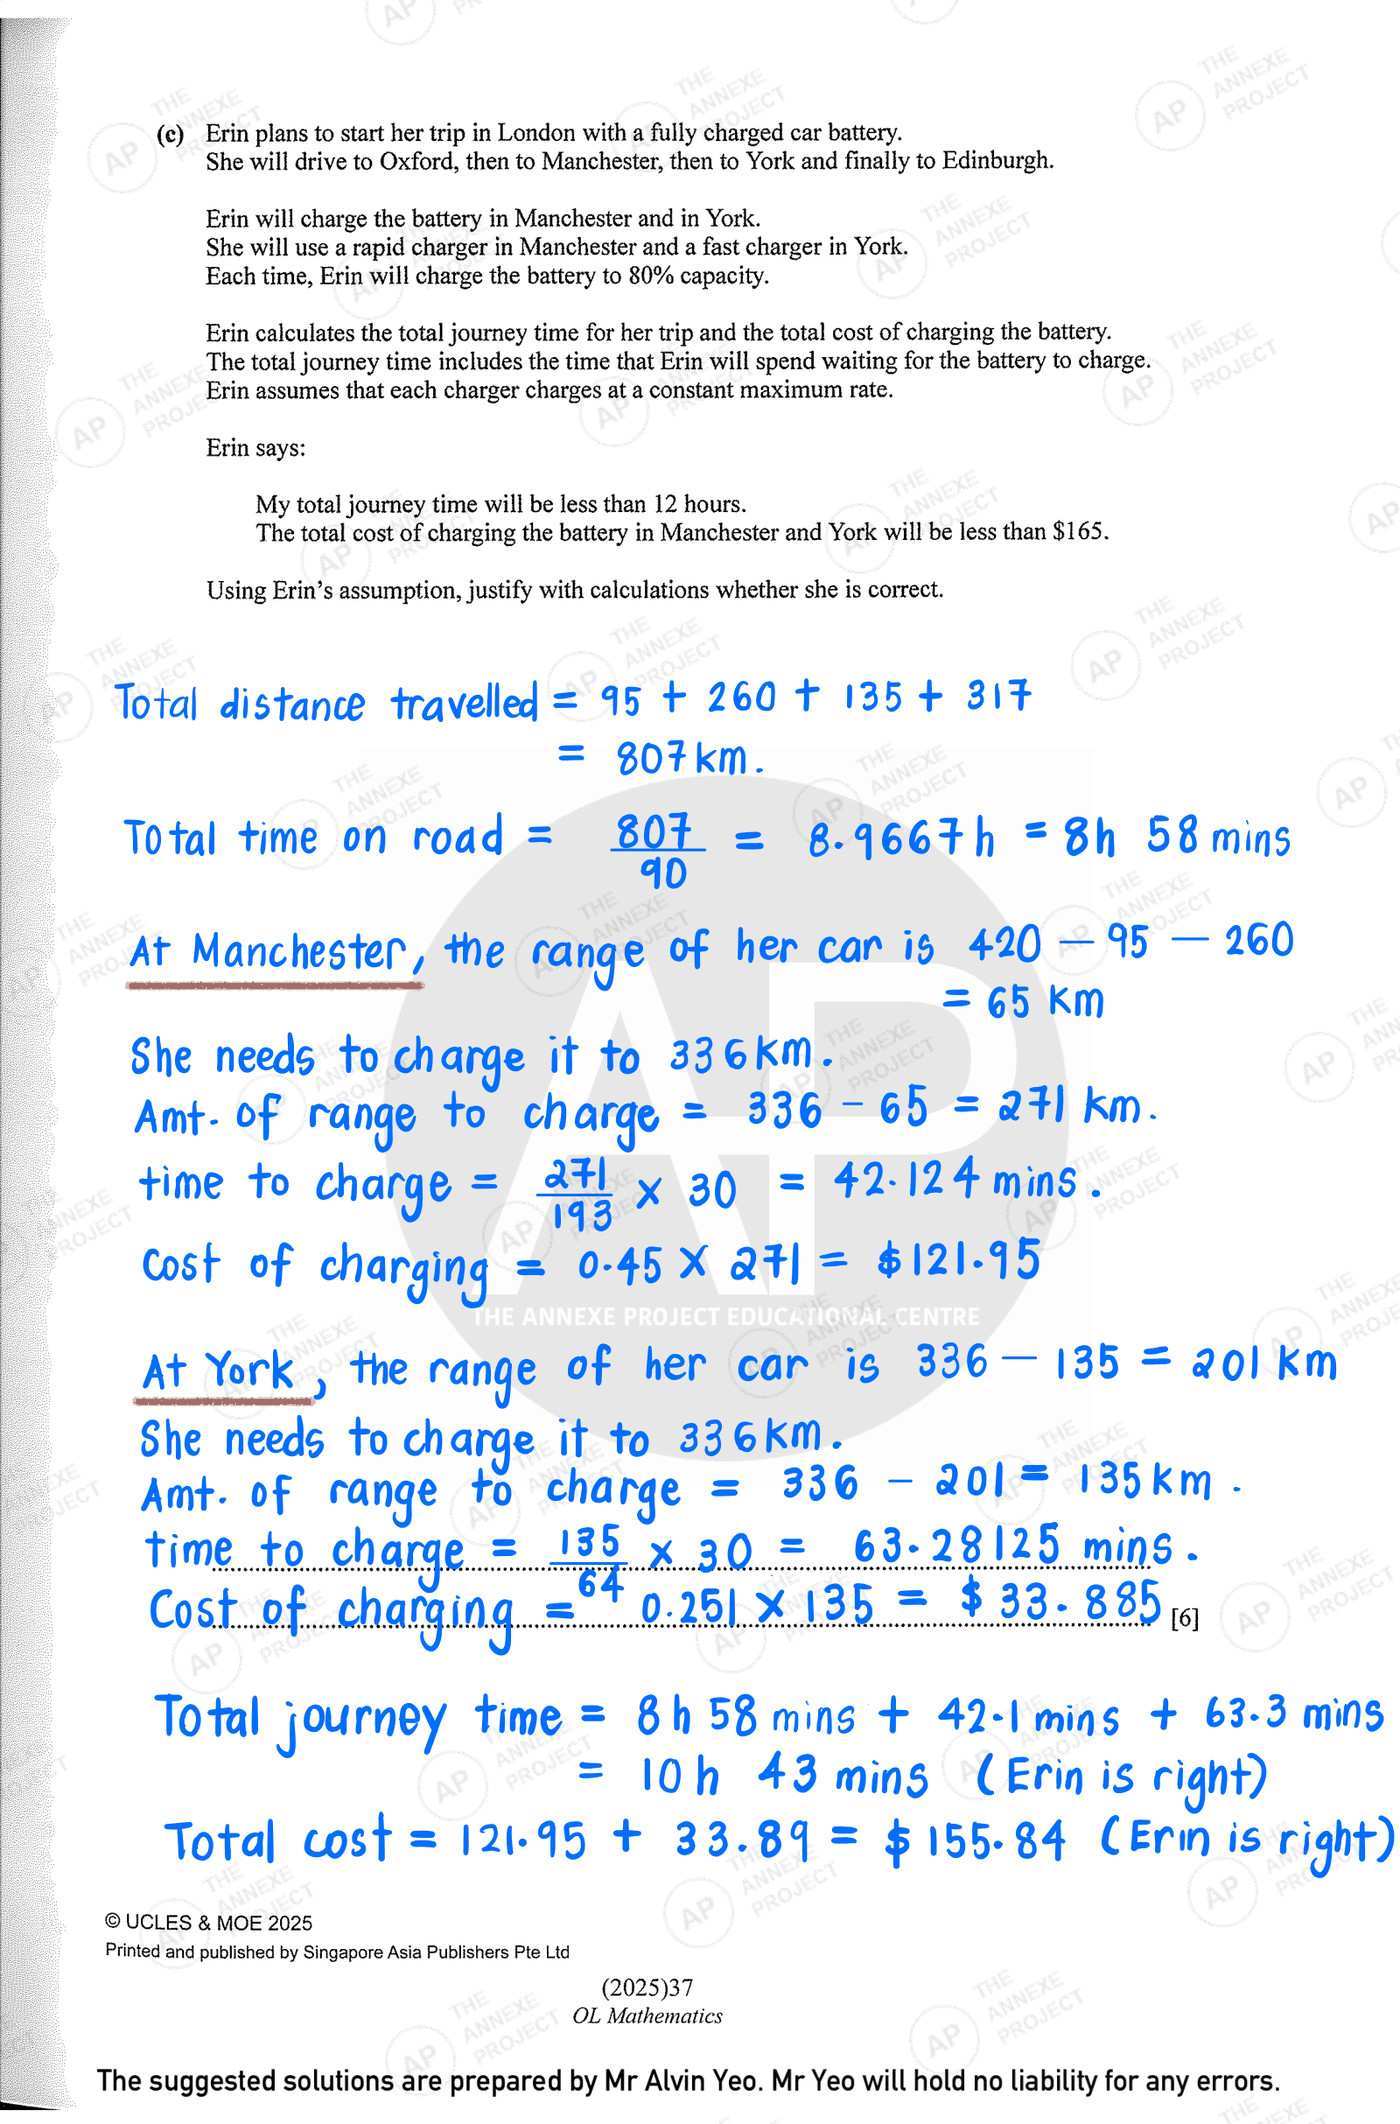 (c) Erin plans to start her trip in London with a fully charged car battery.
She will drive to Oxford, then to Manchester, then to York and finally to Edinburgh.
Erin will charge the battery in Manchester and in York.
She will use a rapid charger in Manchester and a fast charger in York.
Each time, Erin will charge the battery to 80% capacity.
Erin calculates the total journey time for her trip and the total cost of charging the battery.
The total journey time includes the time that Erin will spend waiting for the battery to charge.
Erin assumes that each charger charges at a constant maximum rate.
Erin says:
My total journey time will be less than 12 hours.
The total cost of charging the battery in Manchester and York will be less than $165.
Using Erin's assumption, justify with calculations whether she is correct.
Total distance travelled = 95 + 260 + 135 + 317
= 807 km.
Total time on road = 807/90 = 8.9667 h = 8h 58 mins
At Manchester, the range of her car is 420 – 95 – 260
= 65 km
She needs to charge it to 336 km.
Amt. of range to charge = 336 – 65 = 271 km.
time to charge = 271/193 × 30 = 42.124 mins.
Cost of charging = 0.45 × 271 = $121.95
THE ANNEXE PROJECT EDUCATIONAL CENTRE
At York, the range of her car is 336 – 135 = 201 km
She needs to charge it to 336 km.
Amt. of range to charge = 336 – 201 = 135 km.
time to charge = 135/64 × 30 = 63.28125 mins.
Cost of charging = 0.251 × 135 = $33.885 [6]
Total journey time = 8h 58 mins + 42.1 mins + 63.3 mins
= 10h 43 mins (Erin is right)
Total cost = 121.95 + 33.89 = $155.84 (Erin is right)
© UCLES & MOE 2025
Printed and published by Singapore Asia Publishers Pte Ltd
(2025)37
OL Mathematics
The suggested solutions are prepared by Mr Alvin Yeo. Mr Yeo will hold no liability for any errors.